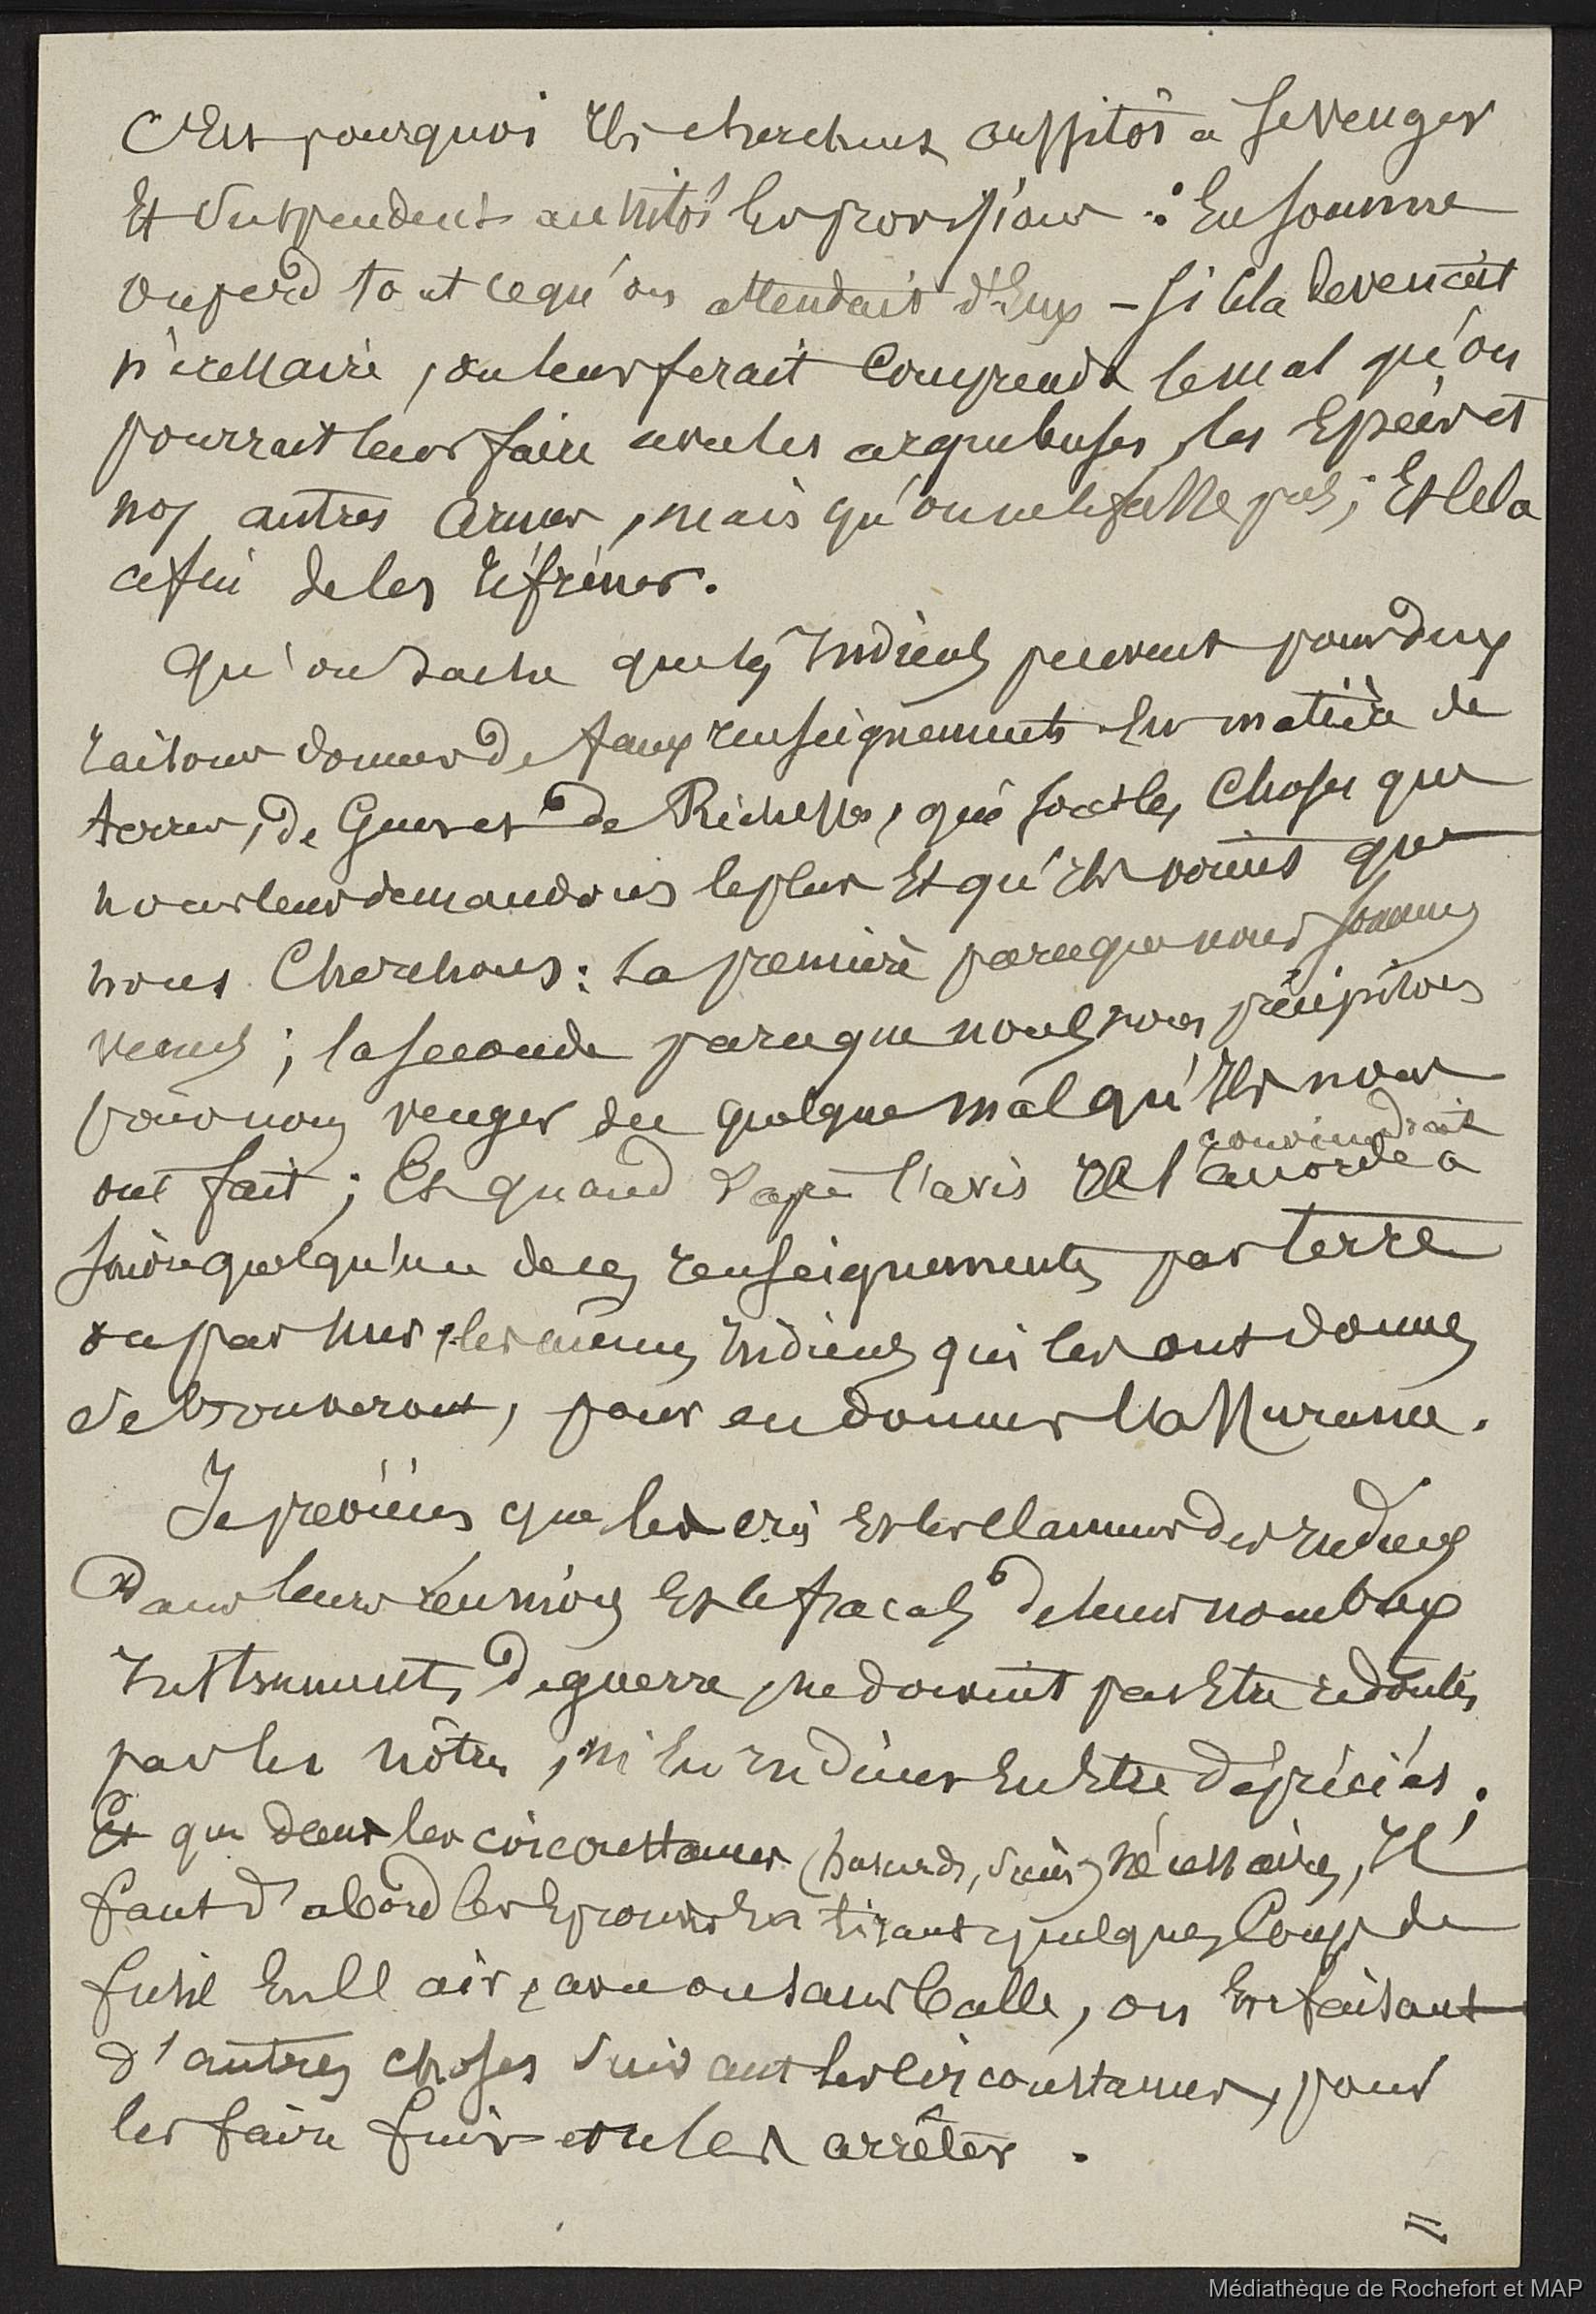 C'Est pourquoi Ils cherchent aussitôt a se venger
Et suspendent aussitôt les provisions : En somme
on perd tout ce qu'on attendait d'Eux - si cela devenait
nécessaire, on leur ferait comprendre le mal qu'on
pourrait leur faire avec les arquebuses, les Epées et
nos autres armes, mais qu'on ne le fasse pas ; Et cela
afin de les réfréner.
Qu'on sache que les Indiens peuvent pour deux
raisons donner de faux renseignements En matière de
terres, de Guerre et de Richesses, qui sont les Choses que
nous leur demandons le plus Et qu'Ils voient que
nous Cherchons : La première parce que nous sommes
venus ; la seconde parce que nous nous précipitons
pour nous venger du quelque mal qu'Ils nous
ont fait ; Et quand d'après l'avis Il
conviendrait
accorde a
suivre quelqu'un de ces renseignements par terre
ou par mer, les mêmes Indiens qui les ont donnés
se trouveront, pour en donner l'assurance.
Je préviens que les cris Et les clameurs des Indiens
Dans leurs réunions Et le fracas de leurs nombreux
Instruments de guerre, ne doivent pas Etre redoutés
par les nôtres, ni les Indiens En Etre dépréciés.
Et que dans les circonstances (hasards, ) nécessaires, Il
faut d'abord les Eprouver En tirant quelques Coups de
fusil En l'air, avec ou sans balle, ou En faisant
d'autres choses suivant les circonstances, pour
les faire fuir et les arrêter.
=
Médiathèque de Rochefort et MAP